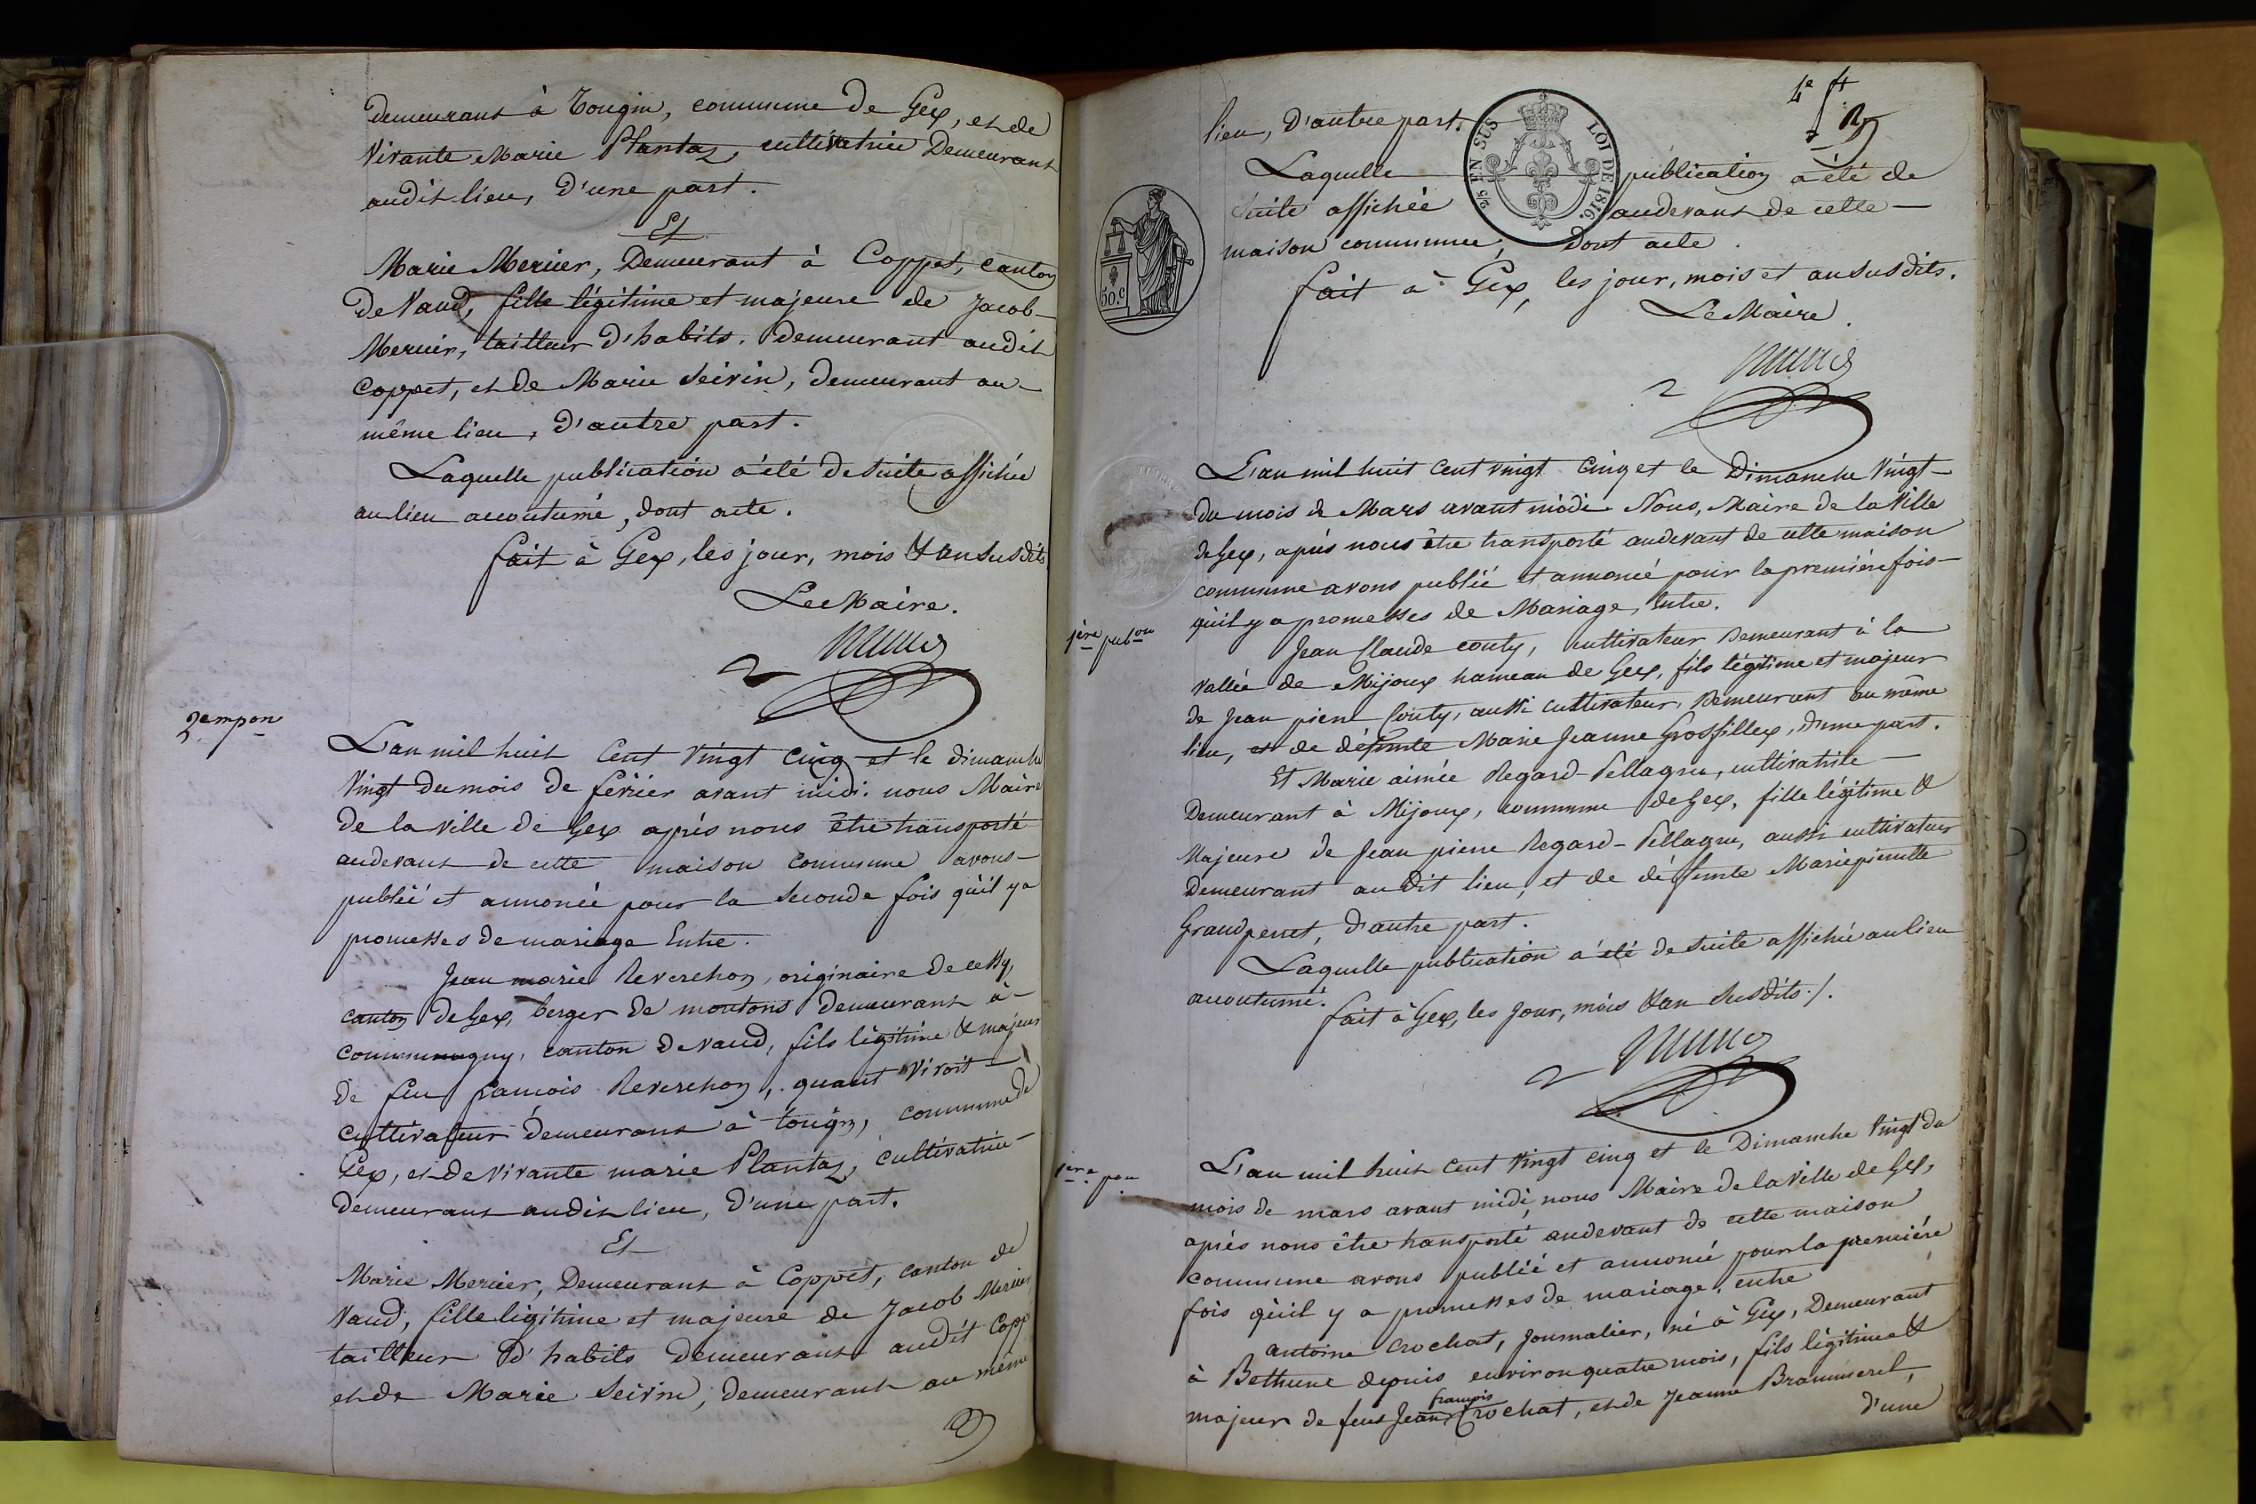 demeurant à Tougin, commune de Gex, et de
vivante Marie Plantaz, cultivatrice Demeurant
audit lieu, d'une part.
Et
Marie Mercier, Demeurant à Coppet, canton
de Vaud, fille légitime et majeure de Jacob
Mercier, tailleur d'habits, Demeurant audit
Coppet, et de Marie Seivin, demeurant au
même lieu, d'autre part.
Laquelle publication a été de suite affichée
au lieu accoutumé, dont acte.
fait à Gex, les jour, mois & an susdits
Le Maire.
2em pon
L'an mil huit cent vingt cinq et le dimanche
vingt du mois de février avant midi. nous Maire
de la ville de Gex après nous être transporté
audevant de cette maison commune avons
publié et annoncé pour la seconde fois qu'il y a
promesses de mariage Entre.
Jean marie Reverchon, originaire de Cessy,
canton de Gex, berger de moutons demeurant à
commugny, canton de vaud, fils légitime & majeur
de feu françois Reverchon, quant vivoit
cultivateur demeurant à tougin, commune de
Gex, et de vivante marie Plantaz, cultivatrice
demeurant audit lieu, d'une part.
Et
Marie Mercier, Demeurant à Coppet, canton de
Vaud, fille légitime et majeure de Jacob Mercier
tailleur d'habits demeurant audit Copp
et de Marie Seivin, demeurant au même
4e ft
lieu, d'autre part.
2/5 EN SUS LOI DE 1816
Laquelle publication a été de
suite affichée audevant de cette
maison commune, dont acte.
50.c
fait à Gex, les jour, mois et an susdits.
Le Maire.
L'an mil huit cent vingt cinq et le Dimanche Vingt
du mois de Mars avant midi Nous, Maire de la Ville
de Gex, après nous être transporté audevant de cette maison
commune avons publié et annoncé pour la première fois
qu'il y a promesses de Mariage, Entre.
1ère pubon
Jean Claude couty, cultivateur Demeurant à la
vallée de Mijoux hameau de Gex, fils légitime et majeur
de Jean pierre Couty, aussi cultivateur, Demeurant au même
lieu, et de défunte Marie Jeanne Grosfillex, d'une part.
Et Marie aimée Regard-Pellagru, cultivatrice
Demeurant à Mijoux, commune de Gex, fille légitime &
Majeure de Jean pierre Regard-Pellagru, aussi cultivateur
Demeurant au dit lieu, et de défunte Marie pierrette
Grandperret, d'autre part.
Laquelle publication a été de suite affichée au lieu
accoutumé.
fait à Gex, les Jour, mois & an Susdits./.
1ère pon
L'an mil huit cent vingt cinq et le Dimanche vingt du
mois de mars avant midi, nous Maire de la Ville de Gex,
après nous être transporté audevant de cette maison
commune avons publié et annoncé pour la première
fois qu'il y a promesses de mariage, entre
antoine Crochat, Journalier, né à Gex, Demeurant
à Bethune depuis environ quatre mois, fils légitime &
françois
majeur de feus Jean Crochat, et de Jeanne Brammerel,
d'une